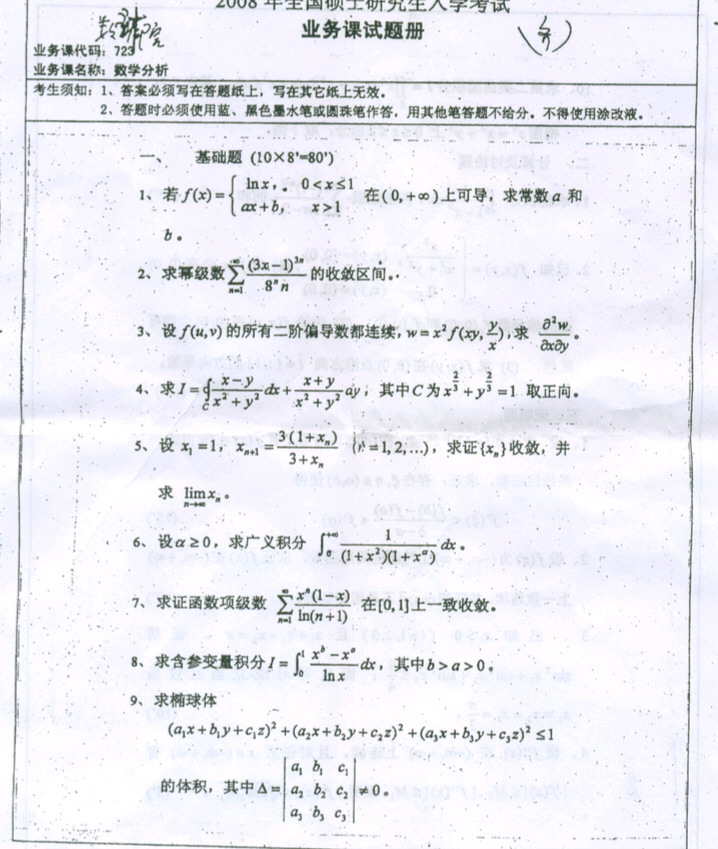 2008 年全国硕士研究生入学考试
业务课试题册
业务课代码：723
业务课名称：数学分析
考生须知：1、答案必须写在答题纸上，写在其它纸上无效。
2、答题时必须使用蓝、黑色墨水笔或圆珠笔作答，用其他笔答题不给分。不得使用涂改液。
一、 基础题 (10×8'=80')
1、若 f(x) = { ln x, 0 < x ≤ 1; ax + b, x > 1 在 (0, +∞) 上可导，求常数 a 和
b。
2、求幂级数 ∑_{n=1}^{∞} (3x−1)^{3n} / (8^n n) 的收敛区间。
3、设 f(u,v) 的所有二阶偏导数都连续, w = x² f(xy, y/x), 求 ∂²w/∂x∂y。
4、求 I = ∮_C (x−y)/(x²+y²) dx + (x+y)/(x²+y²) dy，其中 C 为 x^{2/3} + y^{2/3} = 1 取正向。
5、设 x₁ = 1，x_{n+1} = 3(1+x_n)/(3+x_n) (n = 1,2,…)，求证{x_n}收敛，并
求 lim_{n→∞} x_n。
6、设 α ≥ 0，求广义积分 ∫_0^{+∞} 1/((1+x²)(1+x^α)) dx。
7、求证函数项级数 ∑_{n=1}^{∞} x^n(1−x)/ln(n+1) 在[0,1]上一致收敛。
8、求含参变量积分 I = ∫_0^1 (x^b − x^a)/ln x dx，其中 b > a > 0。
9、求椭球体
(a₁x + b₁y + c₁z)² + (a₂x + b₂y + c₂z)² + (a₃x + b₃y + c₃z)² ≤ 1
的体积，其中 Δ = | a₁ b₁ c₁; a₂ b₂ c₂; a₃ b₃ c₃ | ≠ 0。